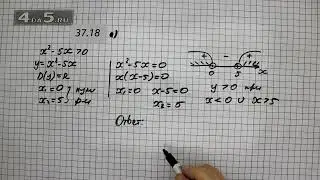 4DA5.RU
37.18 а)
x²-5x>0
y=x²-5x
D(y)=R
x₁=0 } нули
x₂=5 } ф-ии
x²-5x=0
x(x-5)=0
x₁=0 x-5=0
x₂=5
+ - +
0 5 x
y>0 при
x<0 ∪ x>5
Ответ: